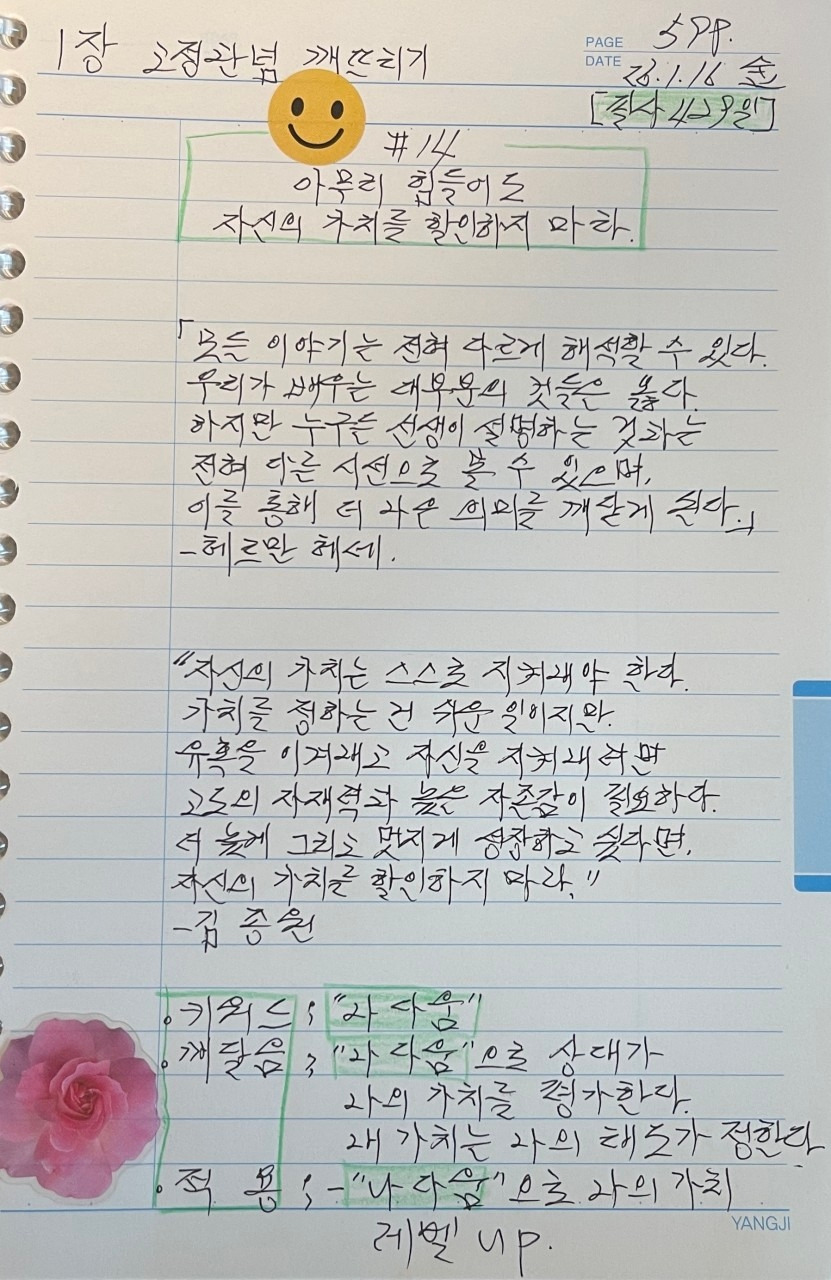 1장 고정관념 깨뜨리기
PAGE 59P.
DATE 26.1.16 金
[필사 429일]
#14
아무리 힘들어도
자신의 가치를 할인하지 마라.
「모든 이야기는 전혀 다르게 해석할 수 있다.
우리가 배우는 대부분의 것들은 옳다.
하지만 누구든 선생이 설명하는 것과는
전혀 다른 시선으로 볼 수 있으며,
이를 통해 더 나은 의미를 깨닫게 된다.」
-헤르만 헤세.
"자신의 가치는 스스로 지켜내야 한다.
가치를 정하는 건 쉬운 일이지만.
유혹을 이겨내고 자신을 지켜내려면
고도의 자제력과 높은 자존감이 필요하다.
더 높게 그리고 멋지게 성장하고 싶다면,
자신의 가치를 할인하지 마라."
-김종원
.키워드; "나 다움"
.깨달음; "나 다움"으로 상대가
나의 가치를 평가한다.
내 가치는 나의 태도가 정한다
.적 용; -"나 다움"으로 나의 가치
레벨 up.
YANGJI